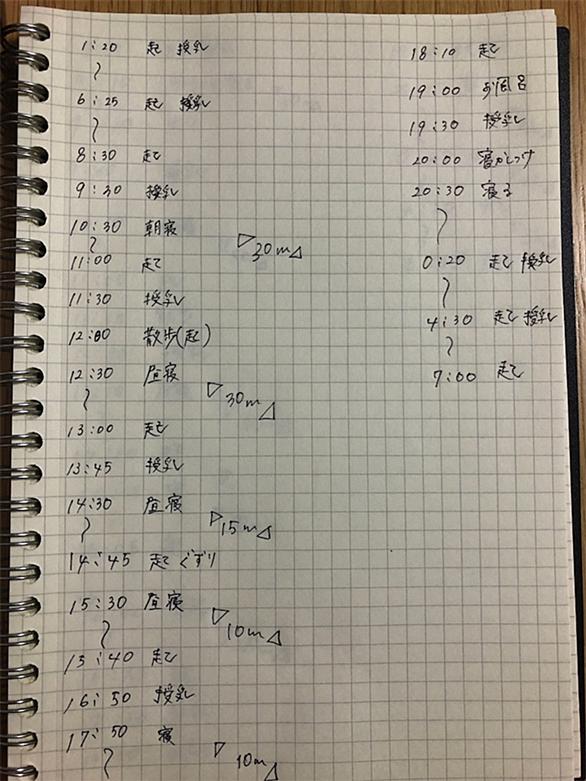 1:20 起 授乳
〜
6:25 起 授乳
〜
8:30 起
9:30 授乳
10:30 朝寝
〜 30m
11:00 起
11:30 授乳
12:00 散歩(起)
12:30 昼寝
〜 30m
13:00 起
13:45 授乳
14:30 昼寝
〜 15m
14:45 起 ぐずり
15:30 昼寝
〜 10m
15:40 起
16:50 授乳
17:50 寝
〜 10m
18:10 起
19:00 お風呂
19:30 授乳
20:00 寝かしつけ
20:30 寝る
〜
0:20 起 授乳
〜
4:30 起 授乳
〜
7:00 起